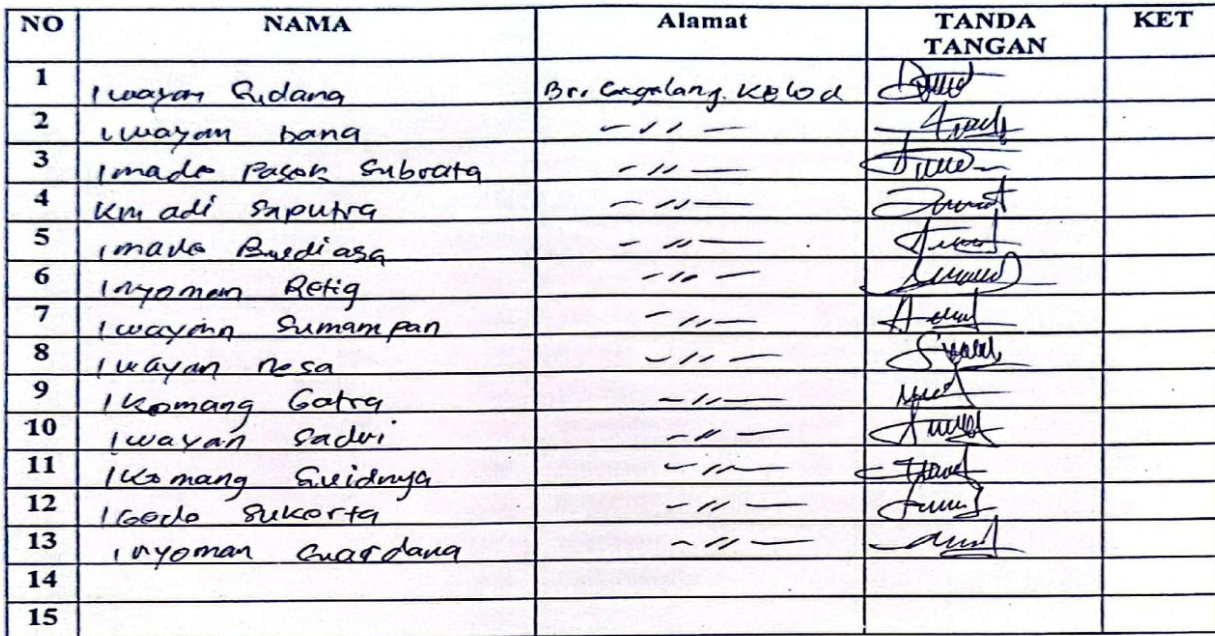 NO NAMA Alamat TANDA TANGAN KET
1 I wayan Sudana Br. Cegelang. Kelod
2 I wayan Dana - // -
3 I made Pasek Subrata - // -
4 Km adi Saputra - // -
5 I made Budiasa - // -
6 I nyoman Retig - // -
7 I wayann Sumampan - // -
8 I wayan nesa - // -
9 I Komang Gatra - // -
10 I wayan Sadri - // -
11 I Komang Suidnya - // -
12 I Gede Sukerta - // -
13 I nyoman Guardana - // -
14
15